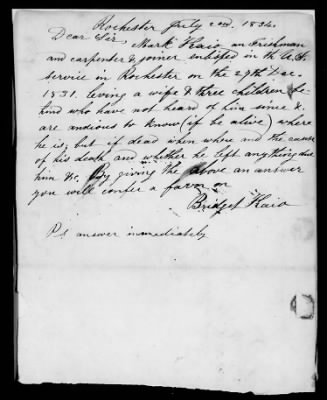 Rochester July 2nd. 1834.
Dear Sir, Mark Kaio an Irishman
and carpenter & joiner enlisted in the U.S.
service in Rochester on the 29th Dec.
1831. leving a wife & three children be-
hind who have not heard of him since &
are anxious to know (if he alive) where
he is; but if dead when where and the cause
of his death and whether he left anything due
him &c. By giving the above an answer
you will confer a favor on
Bridget Kaio
P.S. answer immediately